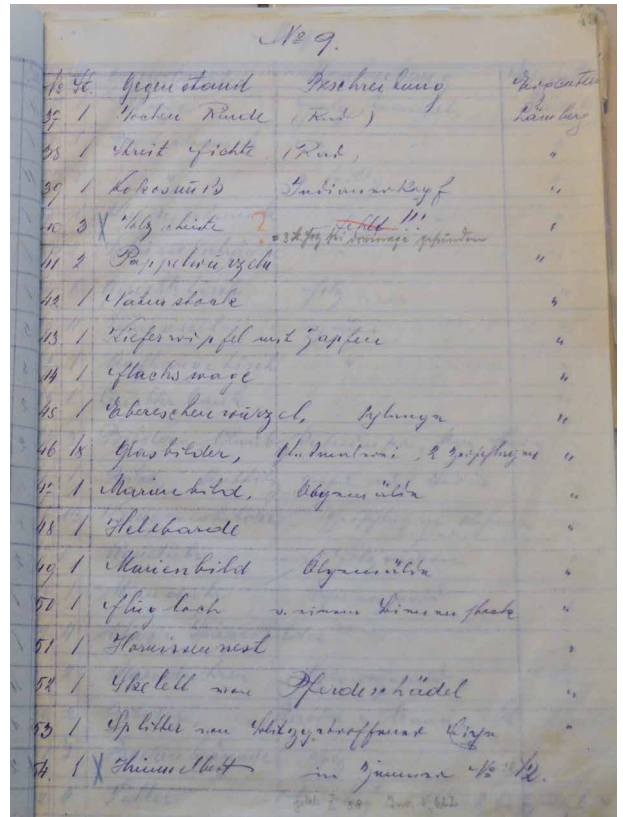 No 9.
No St. Gegenstand Beschreibung
37 1 Rinde (Rad)
38 1 Streit Fichte (Rad)
39 1 Kokosnuss Indianerkopf "
40 3 X ? fehlt !!! "
= 3 St. bei drainage gefunden
41 2 Pappelwurzeln "
42 1 Naturstock "
43 1 Kieferwipfel mit Zapfen "
44 1 Flachswage "
45 1 Ebereschenwurzel, Schlange "
46 18 Glasbilder, Glasmalerei, 2 zerschlagen "
47 1 Marienbild, Ölgemälde "
48 1 Helebarde "
49 1 Marienbild Ölgemälde "
50 1 Flugloch v. einem Bienenstock "
51 1 Hornissennest "
52 1 Skelett von Pferdeschädel "
53 1 Splitter von blitzgetroffener Eiche "
54. 1 X Himmelbett im Zimmer No 12.